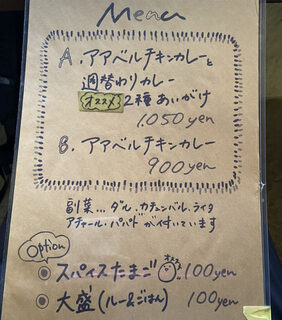 Menu
A. アアベルチキンカレーと
週替わりカレー
オススメ 2種あいがけ
1,050yen
B. アアベルチキンカレー
900yen
副菜...ダル、カチュンバル、ライタ
アチャール、パパド が付いています
Option
スパイスたまご 100yen
大盛(ルー&ごはん) 100yen